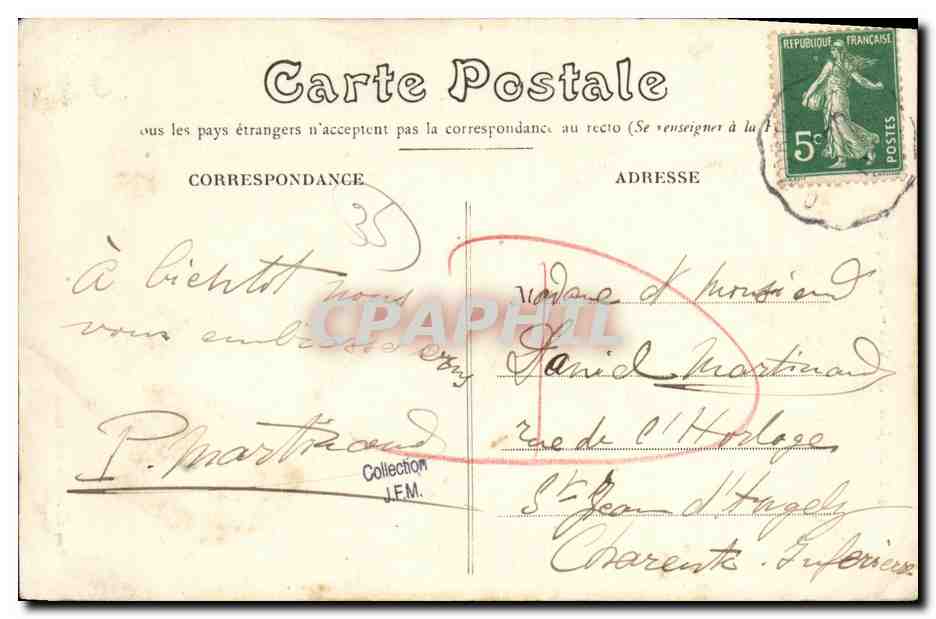 Carte Postale
ous les pays étrangers n'acceptent pas la correspondance au recto (Se renseigner à la
REPUBLIQUE FRANÇAISE
5c
POSTES
CORRESPONDANCE
ADRESSE
35
à bientot nous
vous embrasserons
P. Martinaud
Collection
J.F.M.
Madame et Monsieur
Daniel Martinaud
rue de l'Horloge
St Jean d'Angely
Charente Inferieure
CPAPHIL